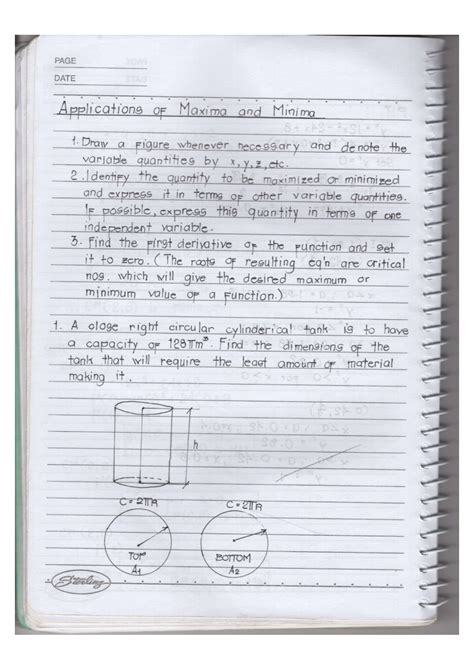 PAGE
DATE
Applications of Maxima and Minima
1. Draw a figure whenever necessary and denote the
variable quantities by x, y, z, etc.
2. Identify the quantity to be maximized or minimized
and express it in terms of other variable quantities.
If possible, express this quantity in terms of one
independent variable.
3. Find the first derivative of the function and set
it to zero. (The roots of resulting eq'n are critical
nos. which will give the desired maximum or
minimum value of a function.)
1. A close right circular cylinderical tank is to have
a capacity of 128πm³. Find the dimensions of the
tank that will require the least amount of material
making it.
h
C = 2πR
C = 2πR
TOP
A1
BOTTOM
A2
Sterling